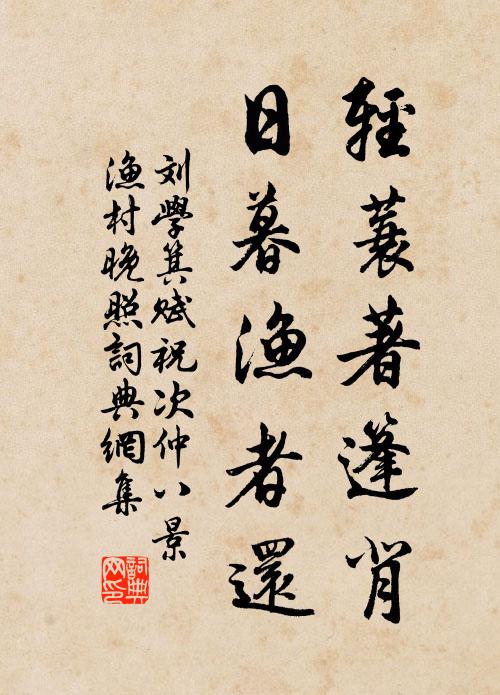 輕蓑著蓬背
日暮漁者還
刘學箕賦祝次仲八景
漁村晚照詞典網集
詞典网印